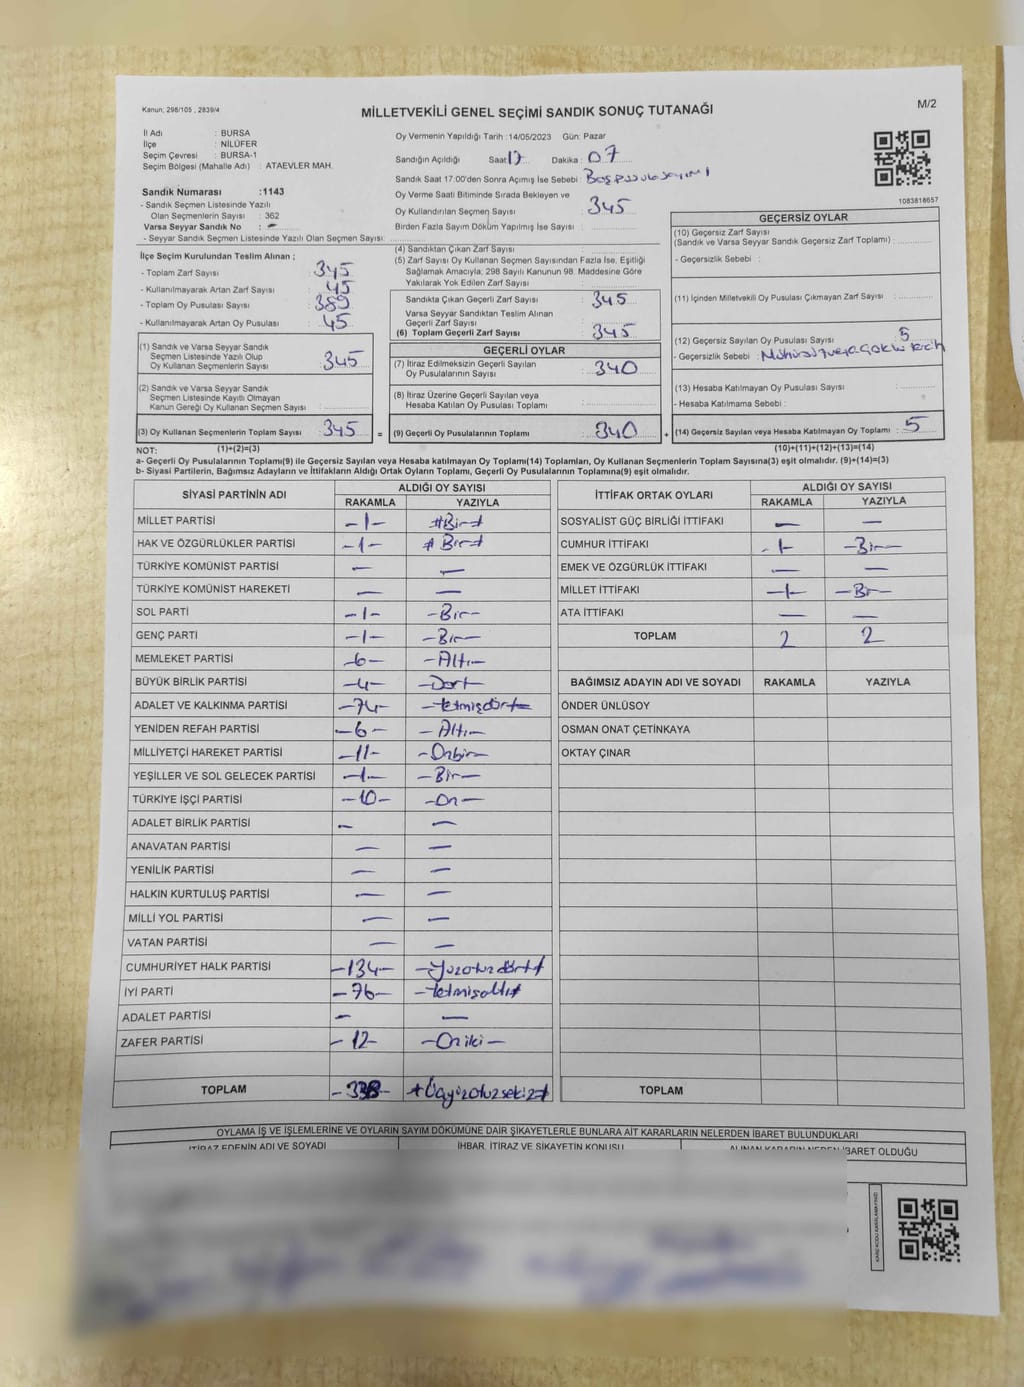 Kanun; 298/105 , 2839/4
MİLLETVEKİLİ GENEL SEÇİMİ SANDIK SONUÇ TUTANAĞI
M/2
İl Adı : BURSA
İlçe : NİLÜFER
Seçim Çevresi : BURSA-1
Seçim Bölgesi (Mahalle Adı) : ATAEVLER MAH.
Sandık Numarası :1143
- Sandık Seçmen Listesinde Yazılı
Olan Seçmenlerin Sayısı : 362
Varsa Seyyar Sandık No : -
- Seyyar Sandık Seçmen Listesinde Yazılı Olan Seçmen Sayısı:
Oy Vermenin Yapıldığı Tarih :14/05/2023 Gün: Pazar
Sandığın Açıldığı Saat: 17 Dakika : 07
Sandık Saat 17:00'den Sonra Açımış İse Sebebi :
Oy Verme Saati Bitiminde Sırada Bekleyen ve
Oy Kullandırılan Seçmen Sayısı : 345
Birden Fazla Sayım Döküm Yapılmış İse Sayısı :
1083818657
İlçe Seçim Kurulundan Teslim Alınan ;
- Toplam Zarf Sayısı : 345
- Kullanılmayarak Artan Zarf Sayısı : 45
- Toplam Oy Pusulası Sayısı : 389
- Kullanılmayarak Artan Oy Pusulası : 45
(1) Sandık ve Varsa Seyyar Sandık
Seçmen Listesinde Yazılı Olup
Oy Kullanan Seçmenlerin Sayısı : 345
(2) Sandık ve Varsa Seyyar Sandık
Seçmen Listesinde Kayıtlı Olmayan
Kanun Gereği Oy Kullanan Seçmen Sayısı :
(3) Oy Kullanan Seçmenlerin Toplam Sayısı : 345 =
(4) Sandıktan Çıkan Zarf Sayısı :
(5) Zarf Sayısı Oy Kullanan Seçmen Sayısından Fazla İse, Eşitliği
Sağlamak Amacıyla, 298 Sayılı Kanunun 98. Maddesine Göre
Yakılarak Yok Edilen Zarf Sayısı :
Sandıkta Çıkan Geçerli Zarf Sayısı : 345
Varsa Seyyar Sandıktan Teslim Alınan
Geçerli Zarf Sayısı :
(6) Toplam Geçerli Zarf Sayısı : 345
GEÇERLİ OYLAR
(7) İtiraz Edilmeksizin Geçerli Sayılan
Oy Pusulalarının Sayısı : 340
(8) İtiraz Üzerine Geçerli Sayılan veya
Hesaba Katılan Oy Pusulası Toplamı :
(9) Geçerli Oy Pusulalarının Toplamı : 340 +
GEÇERSİZ OYLAR
(10) Geçersiz Zarf Sayısı
(Sandık ve Varsa Seyyar Sandık Geçersiz Zarf Toplamı) :
- Geçersizlik Sebebi :
(11) İçinden Milletvekili Oy Pusulası Çıkmayan Zarf Sayısı :
(12) Geçersiz Sayılan Oy Pusulası Sayısı : 5
- Geçersizlik Sebebi :
(13) Hesaba Katılmayan Oy Pusulası Sayısı :
- Hesaba Katılmama Sebebi :
(14) Geçersiz Sayılan veya Hesaba Katılmayan Oy Toplamı : 5
NOT: (1)+(2)=(3)
(10)+(11)+(12)+(13)=(14)
a- Geçerli Oy Pusulalarının Toplamı(9) ile Geçersiz Sayılan veya Hesaba katılmayan Oy Toplamı(14) Toplamları, Oy Kullanan Seçmenlerin Toplam Sayısına(3) eşit olmalıdır. (9)+(14)=(3)
b- Siyasi Partilerin, Bağımsız Adayların ve İttifakların Aldığı Ortak Oyların Toplamı, Geçerli Oy Pusulalarının Toplamına(9) eşit olmalıdır.
SİYASİ PARTİNİN ADI ALDIĞI OY SAYISI
RAKAMLA YAZIYLA
MİLLET PARTİSİ -1- #Bir#
HAK VE ÖZGÜRLÜKLER PARTİSİ -1- #Bir#
TÜRKİYE KOMÜNİST PARTİSİ - -
TÜRKİYE KOMÜNİST HAREKETİ - -
SOL PARTİ -1- -Bir-
GENÇ PARTİ -1- -Bir-
MEMLEKET PARTİSİ -6- -Altı-
BÜYÜK BİRLİK PARTİSİ -4- -Dört-
ADALET VE KALKINMA PARTİSİ -74- -Yetmişdört-
YENİDEN REFAH PARTİSİ -6- -Altı-
MİLLİYETÇİ HAREKET PARTİSİ -11- -Onbir-
YEŞİLLER VE SOL GELECEK PARTİSİ -1- -Bir-
TÜRKİYE İŞÇİ PARTİSİ -10- -On-
ADALET BİRLİK PARTİSİ - -
ANAVATAN PARTİSİ - -
YENİLİK PARTİSİ - -
HALKIN KURTULUŞ PARTİSİ - -
MİLLİ YOL PARTİSİ - -
VATAN PARTİSİ - -
CUMHURİYET HALK PARTİSİ -134- -Yüzotuzdört-
İYİ PARTİ -76- -Yetmişaltı-
ADALET PARTİSİ - -
ZAFER PARTİSİ -12- -Oniki-
TOPLAM -338- #Üçyüzotuzsekiz#
İTTİFAK ORTAK OYLARI ALDIĞI OY SAYISI
RAKAMLA YAZIYLA
SOSYALİST GÜÇ BİRLİĞİ İTTİFAKI - -
CUMHUR İTTİFAKI -1- -Bir-
EMEK VE ÖZGÜRLÜK İTTİFAKI - -
MİLLET İTTİFAKI -1- -Bir-
ATA İTTİFAKI - -
TOPLAM 2 2
BAĞIMSIZ ADAYIN ADI VE SOYADI RAKAMLA YAZIYLA
ÖNDER ÜNLÜSOY
OSMAN ONAT ÇETİNKAYA
OKTAY ÇINAR
TOPLAM
OYLAMA İŞ VE İŞLEMLERİNE VE OYLARIN SAYIM DÖKÜMÜNE DAİR ŞİKAYETLERLE BUNLARA AİT KARARLARIN NELERDEN İBARET BULUNDUKLARI
İTİRAZ EDENİN ADI VE SOYADI İHBAR, İTİRAZ VE ŞİKAYETİN KONUSU ALINAN KARARIN NEDEN İBARET OLDUĞU